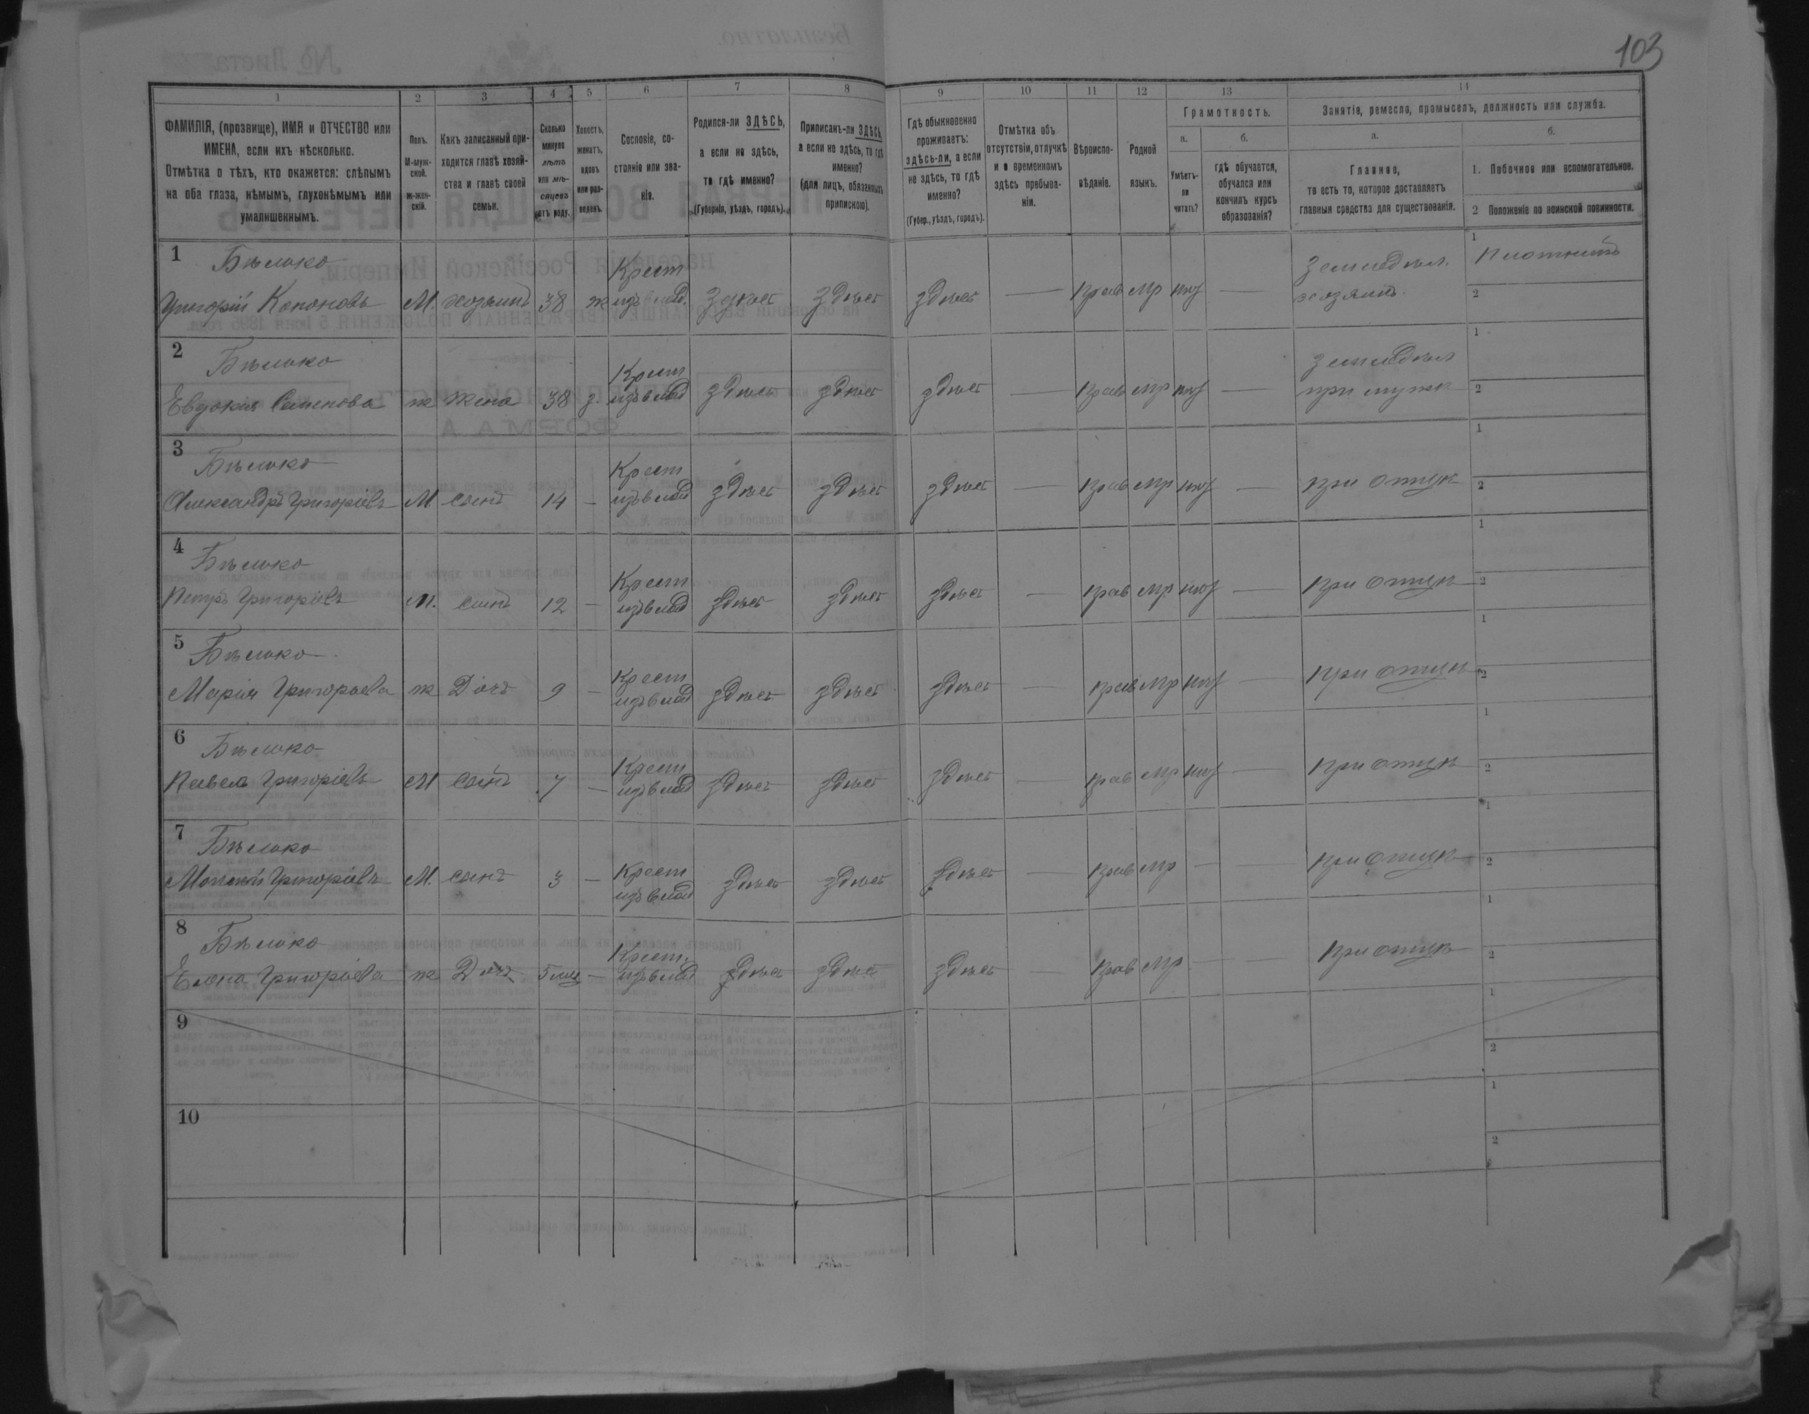 103
1 2 3 4 5 6 7 8 9 10 11 12 13 14
ФАМИЛІЯ, (прозвище), ИМЯ и ОТЧЕСТВО или
ИМЕНА, если ихъ нѣсколько.
Отмѣтка о тѣхъ, кто окажется: слѣпымъ
на оба глаза, нѣмымъ, глухонѣмымъ или
умалишеннымъ.
Полъ.
М-муж-
ской.
Ж-жен-
скій.
Какъ записанный при-
ходится главѣ хозяй-
ства и главѣ своей
семьи.
Сколько
минуло
лѣтъ
или мѣ-
сяцевъ
отъ роду.
Холостъ,
женатъ,
вдовъ
или раз-
веденъ.
Сословіе, со-
стояніе или зва-
ніе.
Родился-ли ЗДѢСЬ,
а если не здѣсь,
то гдѣ именно?
(Губернія, уѣздъ, городъ).
Приписанъ-ли ЗДѢСЬ,
а если не здѣсь, то гдѣ
именно?
(для лицъ, обязанныхъ
припискою).
Гдѣ обыкновенно
проживаетъ:
здѣсь-ли, а если
не здѣсь, то гдѣ
именно?
(Губер., уѣздъ, городъ).
Отмѣтка объ
отсутствіи, отлучкѣ
и о временномъ
здѣсь пребыва-
ніи.
Вѣроиспо-
вѣданіе.
Родной
языкъ.
Грамотность.
а.
Умѣетъ-
ли
читать?
б.
гдѣ обучается,
обучался или
кончилъ курсъ
образованія?
Занятія, ремесло, промыселъ, должность или служба.
а.
Главное,
то есть то, которое доставляетъ
главныя средства для существованія.
б.
1. Побочное или вспомогательное.
2 Положеніе по воинской повинности.
1 Бѣлоко Крест Земледѣл. 1 Плотникъ
Григорій Кононовъ М. хозяинъ 38 ж изъ влад. Здѣсь Здѣсь здѣсь — Прав Мр — хозяинъ 2
2 Бѣлоко Крест земледѣл 1
Евдокія Семенова ж жена 38 з. изъ влад здѣсь здѣсь здѣсь — Прав Мр — при мужѣ 2
3 Бѣлоко Крест 1
Александръ Григорьевъ М сынъ 14 — изъ влад здѣсь здѣсь здѣсь — Прав Мр — при отцѣ 2
4 Бѣлоко Крест 1
Петръ Григорьевъ М. сынъ 12 — изъ влад здѣсь здѣсь здѣсь — Прав Мр — при отцѣ 2
5 Бѣлоко Крест 1
Марія Григорьева ж Дочь 9 — изъ влад здѣсь здѣсь здѣсь — Прав Мр — при отцѣ 2
6 Бѣлоко Крест 1
Павелъ Григорьевъ М сынъ 7 — изъ влад здѣсь здѣсь здѣсь — Прав Мр — при отцѣ 2
7 Бѣлоко Крест 1
Григорьевъ М. сынъ 3 — изъ влад здѣсь здѣсь здѣсь — Прав Мр — — при отцѣ 2
8 Бѣлоко Крест. 1
Елена Григорьева ж Доч 5 мц — изъ влад здѣсь здѣсь здѣсь — Прав Мр — — при отцѣ 2
9 1
2
10 1
2